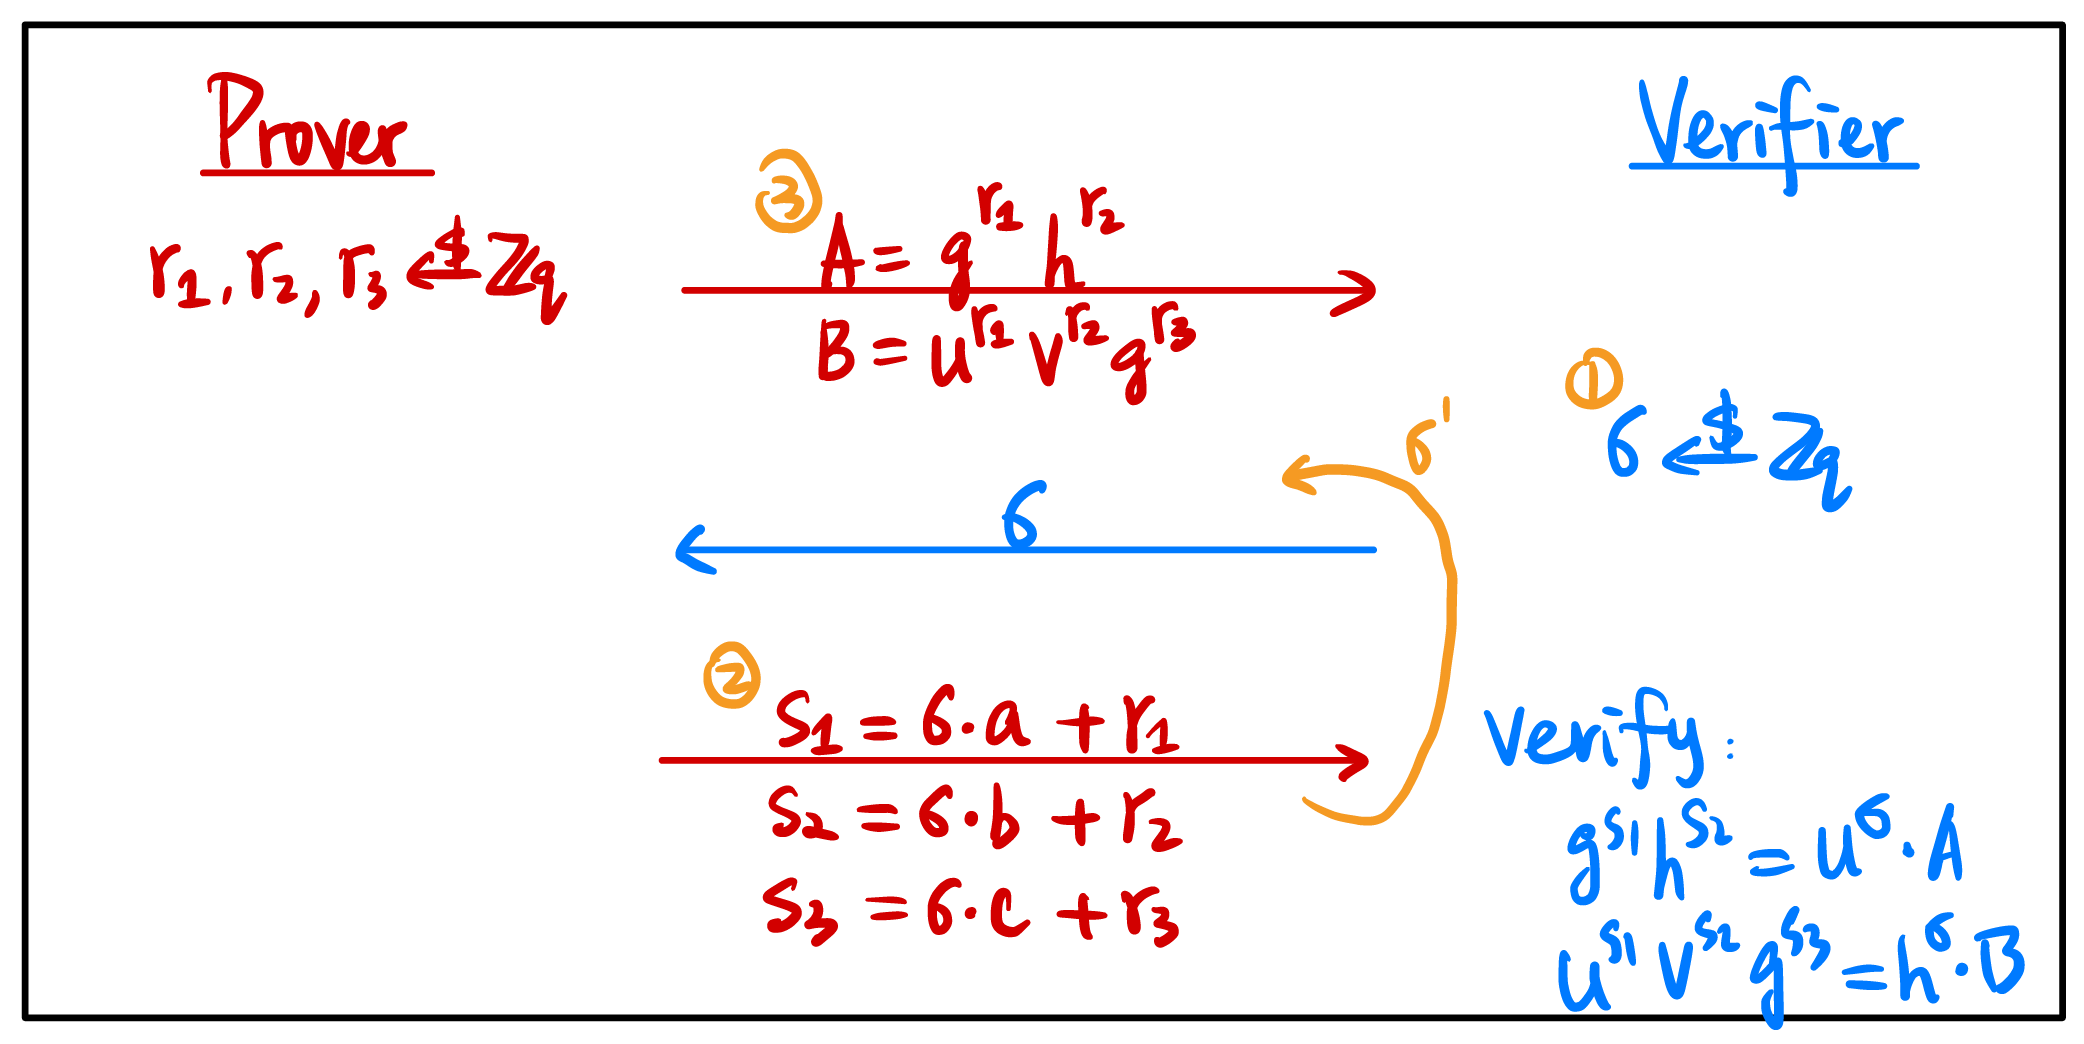 Prover
Verifier
r₁, r₂, r₃ ←$ ℤq
③
A = g^r₁ h^r₂
B = u^r₁ v^r₂ g^r₃
①
σ ←$ ℤq
σ'
σ
②
S₁ = σ·a + r₁
S₂ = σ·b + r₂
S₃ = σ·c + r₃
verify:
g^s₁ h^s₂ = u^σ · A
u^s₁ v^s₂ g^s₃ = h^σ · B